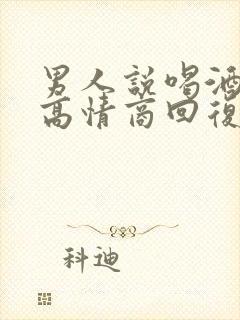 男人說喝酒
高情商回復
科迪